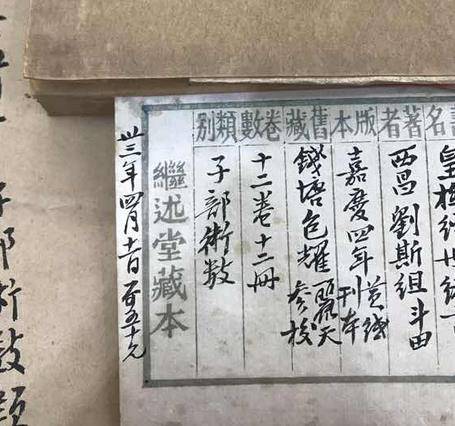 書名 著者 版本 舊藏 卷數 類別
皇極經世緒
西昌劉斯組斗田
嘉慶四年刊本
錢塘包耀麗天參校
十二卷十二冊
子部術數
繼述堂藏本
卅三年四月 百五十元
子部術數類